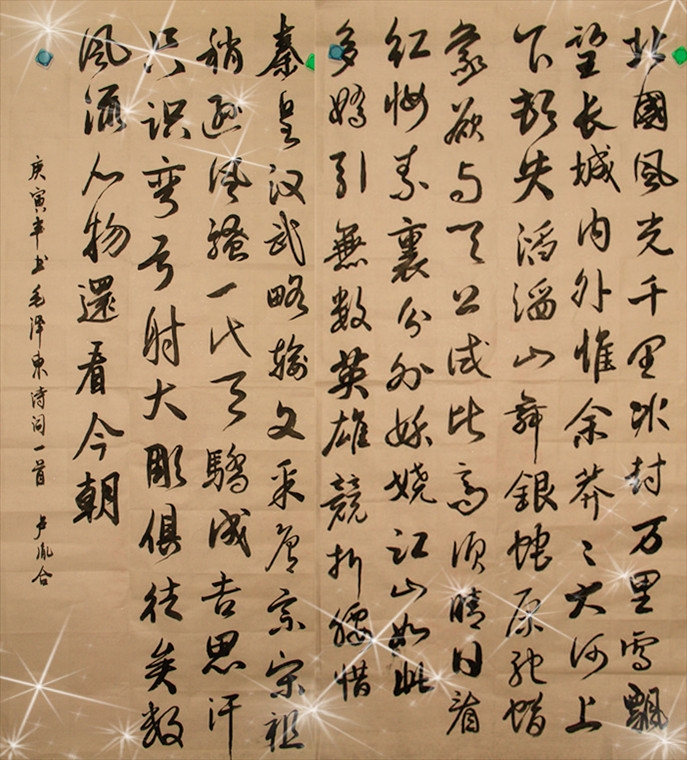 北國风光千里冰封万里雪飘
望长城内外惟余莽〻大河上
下顿失滔滔山舞銀蛇原驰蜡
象欲与天公试比高须晴日看
红妆素裹分外妖娆江山如此
多嬌引無数英雄競折腰惜
秦皇汉武略输文采唐宗宋祖
稍逊风骚一代天驕成吉思汗
只识弯弓射大彫俱往矣数
风流人物還看今朝
庚寅年书毛泽东诗词一首 卢胤合